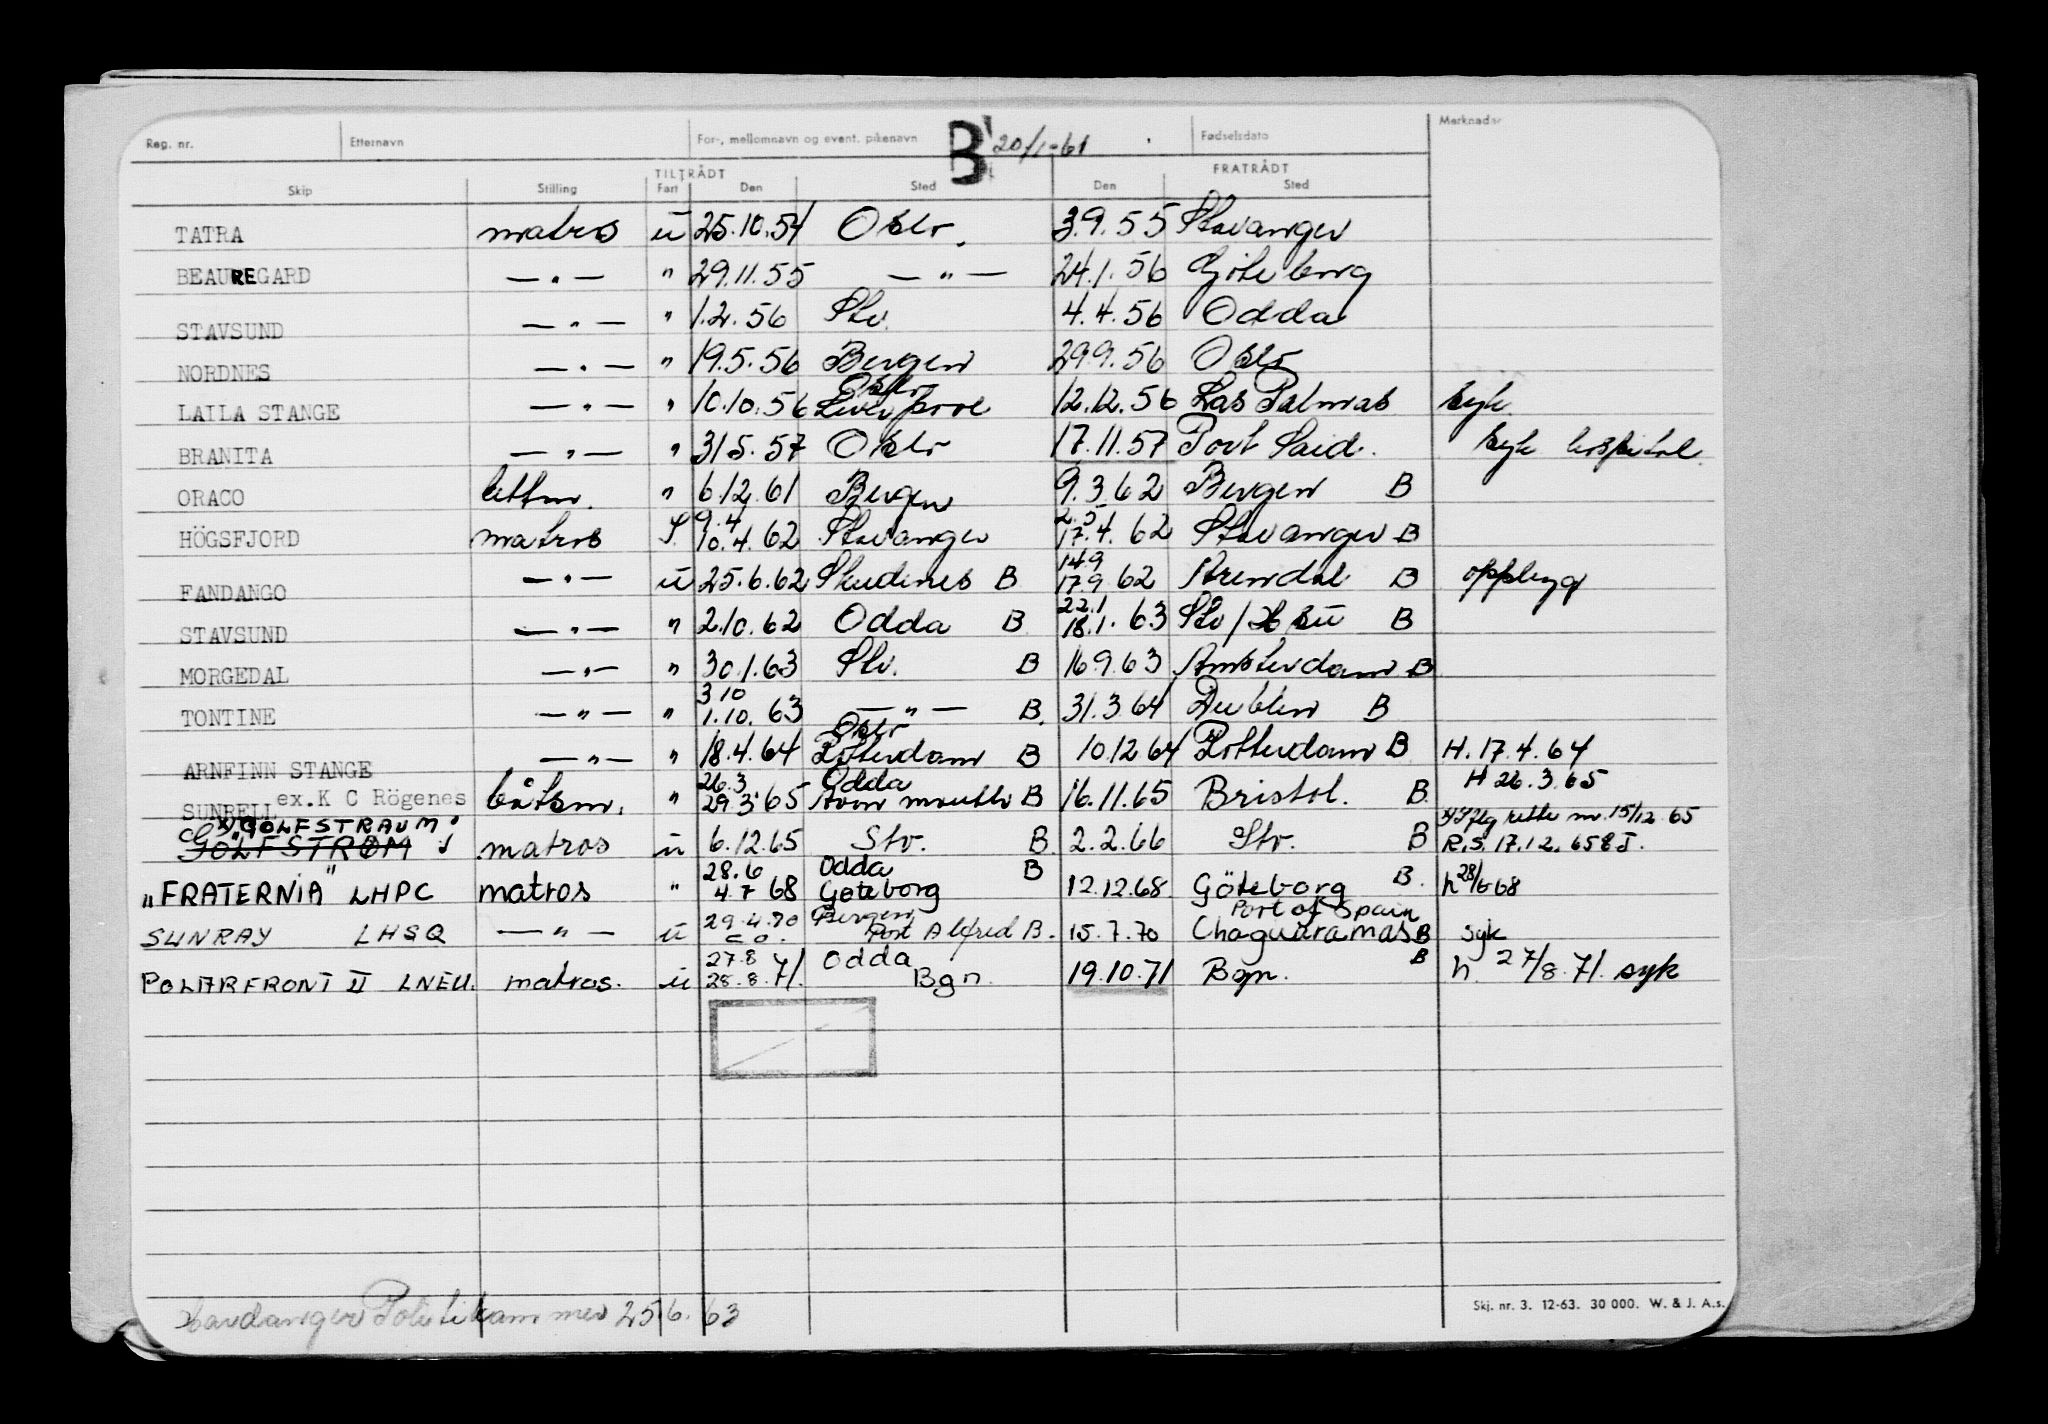 Reg. nr. Etternavn For-, mellomnavn og event. pikenavn B 20/1-61 Fødselsdato Merknader
TILTRÅDT FRATRÅDT
Skip Stilling Fart Den Sted Den Sted
TATRA matros u 25.10.54 Oslo. 3.9.55 Stavanger
BEAUREGARD —"— " 29.11.55 —"— 24.1.56 Göteborg
STAVSUND —"— " 1.2.56 Stv. 4.4.56 Odda
NORDNES —"— " 19.5.56 Bergen 29.9.56 Oslo
Oslo
LAILA STANGE —"— " 10.10.56 Liverpool 12.12.56 Las Palmas syk.
BRANITA —"— " 31.5.57 Oslo 17.11.57 Port Said. syk hospital.
ORACO lettm. " 6.12.61 Bergen 9.3.62 Bergen B
9.4 2.5
HÖGSFJORD matros S. 10.4.62 Stavanger 17.4.62 Stavanger B
14.9
FANDANGO —"— u 25.6.62 Skudenes B 17.9.62 Arendal B opphugg
22.1
STAVSUND —"— " 2.10.62 Odda B 18.1.63 Stv/Hsu B
MORGEDAL —"— " 30.1.63 Stv. B 16.9.63 Amsterdam B
3 10
TONTINE —"— " 1.10.63 —"— B. 31.3.64 Dublin B
Oslo
ARNFINN STANGE —"— " 18.4.64 Rotterdam B 10.12.64 Rotterdam B H. 17.4.64
26.3 Odda H 26.3.65
SUNRELL ex.K C Rögenes båtsm. " 29.3.65 Avonmouth B 16.11.65 Bristol. B.
"GOLFSTRAUM" rette m. 15/12 65
GOLFSTRØM matros u 6.12.65 Stv. B. 2.2.66 Stv. B R.S. 17.12.65
28.6 Odda B
"FRATERNIA" LHPC matros " 4.7 68 Göteborg 12.12.68. Göteborg B. h 28/6 68
29.4.70 Bergen Port of Spain
SUNRAY LHSQ —"— u c o. Port Alfred B. 15.7.70 Chaguaramas B syk
27.8 Odda B
POLARFRONT II LNEU. matros. u 28.8.71. Bgn. 19.10.71 Bgn. h. 27/8.71. syk
Hardanger Politikammer 25.6.63
Skj. nr. 3. 12-63. 30 000. W. & J. A.s.